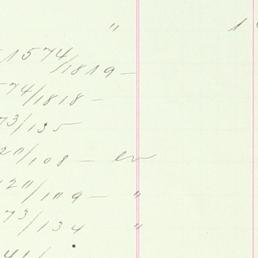 " 1
1574/1819 –
574/1818 –
73/135
211/108 – en
211/109 – "
73/134 "
41/